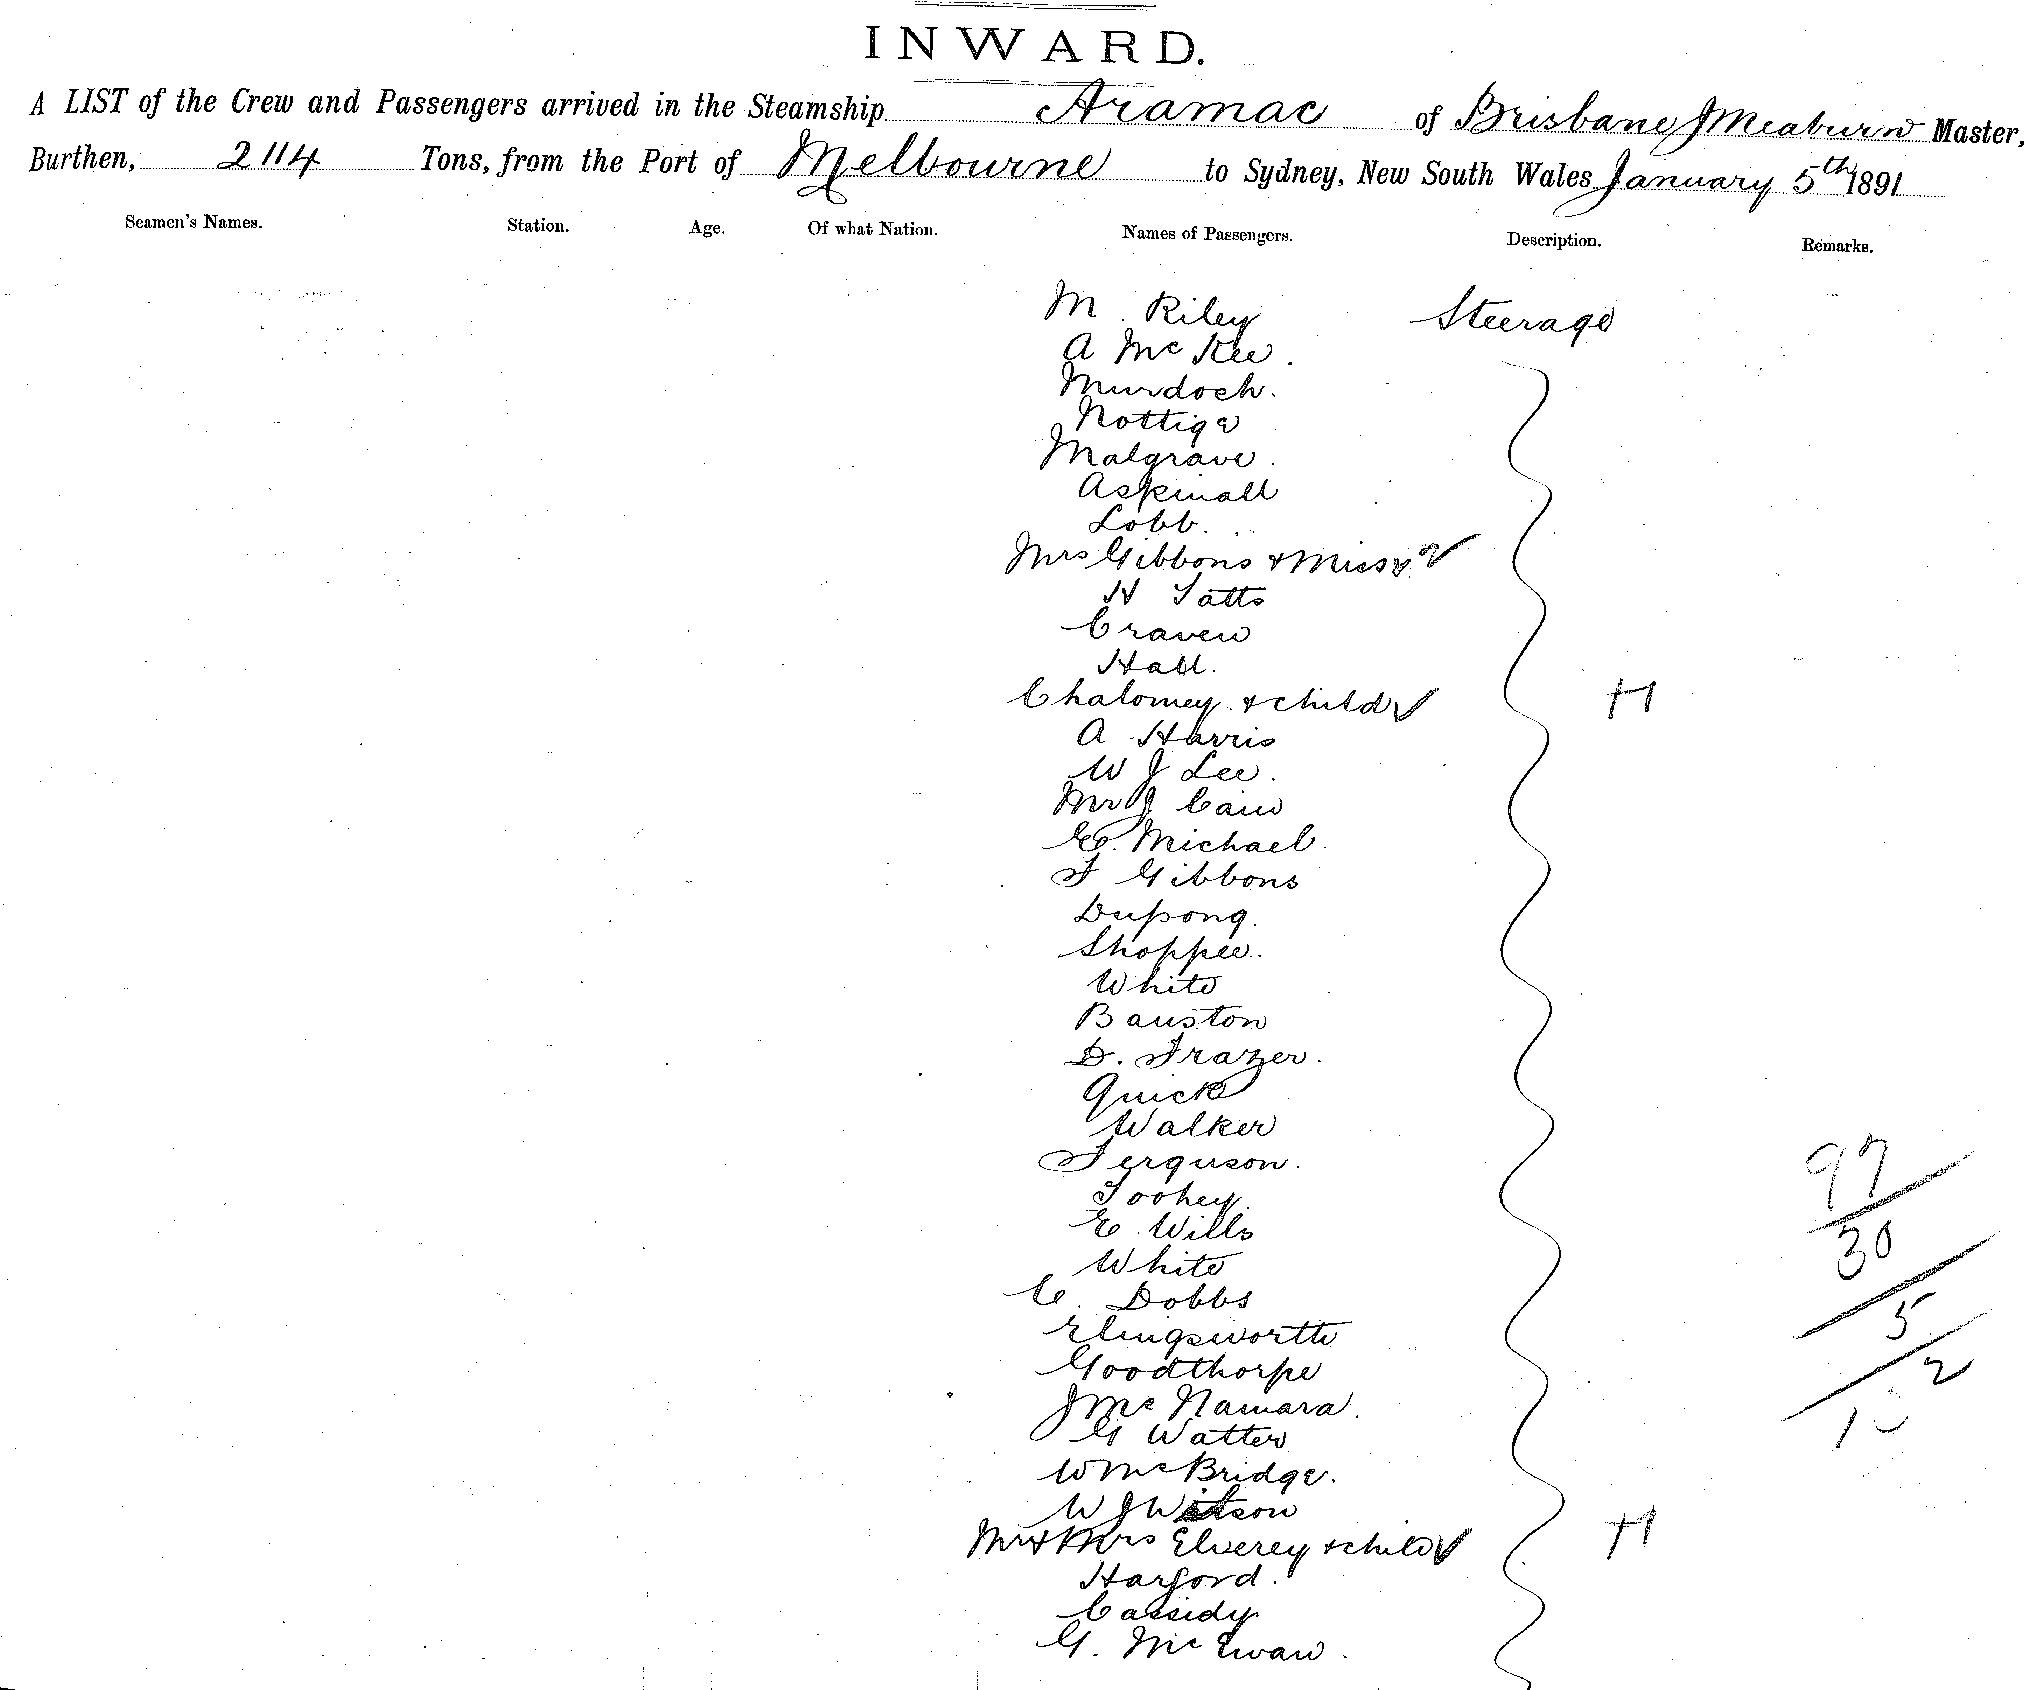 INWARD.
A LIST of the Crew and Passengers arrived in the Steamship Aramac of Brisbane J Meaburn Master,
Burthen, 2114 Tons, from the Port of Melbourne to Sydney, New South Wales January 5th 1891
Seamen's Names. Station. Age. Of what Nation. Names of Passengers. Description. Remarks.
M. Riley Steerage
A McKee.
Murdoch.
Nottige
Malgrave.
Aspinall
Lobb.
Mrs Gibbons & Miss
H Tatts
Craven
Hall.
Chalomey & child H
A Harris
W J Lee.
Mr J Cain
C. Michael
F Gibbons
Dupong.
Shoppee.
White
Bauston
D. Frazer.
Quick
Walker
Ferguson.
Toohey
E Wills
White
C. Dobbs
Elingsworth
Goodthorpe
J McNamara.
G Watter
W McBridge.
W J
Mr & Mrs Elverey & child H
Harford.
Cassidy
G. McEwan.
97
30
5
2